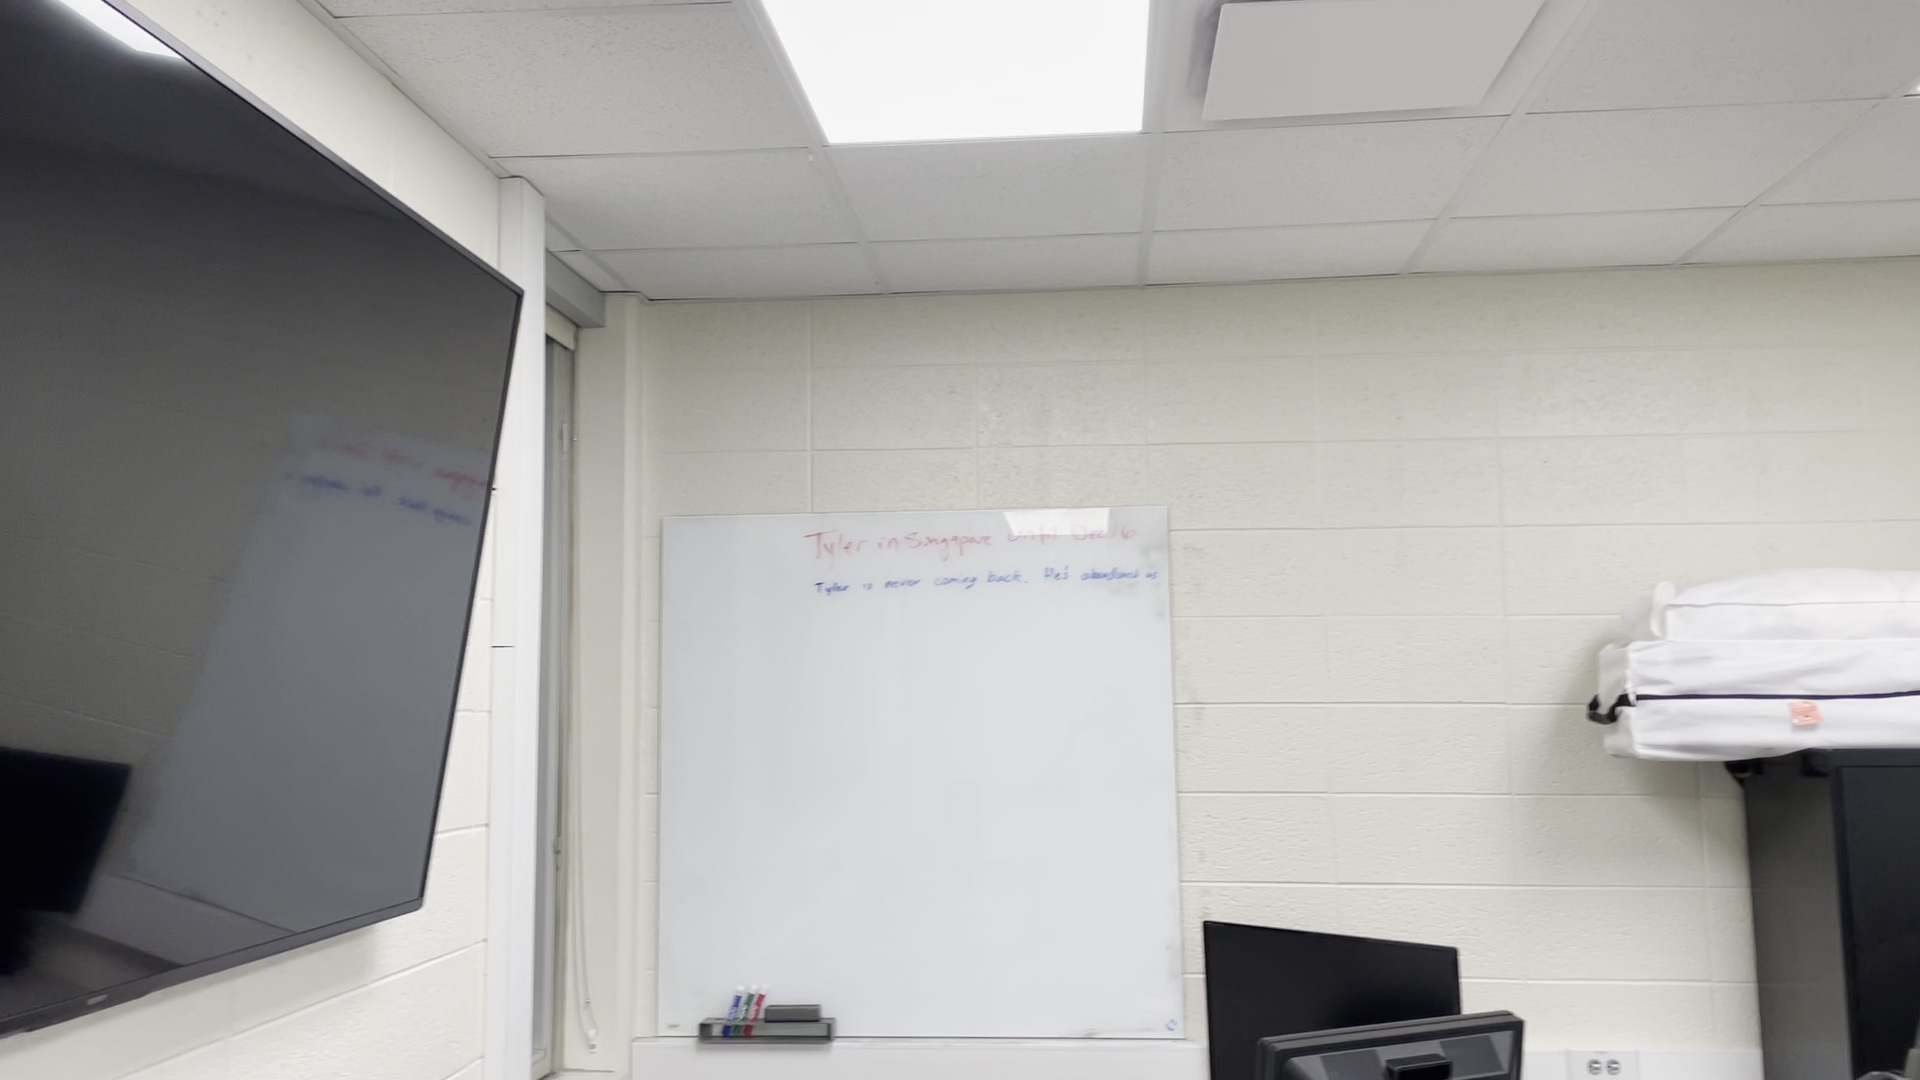 Tyler in Singapore until Dec 16
Tyler is never coming back. He's abandoned us